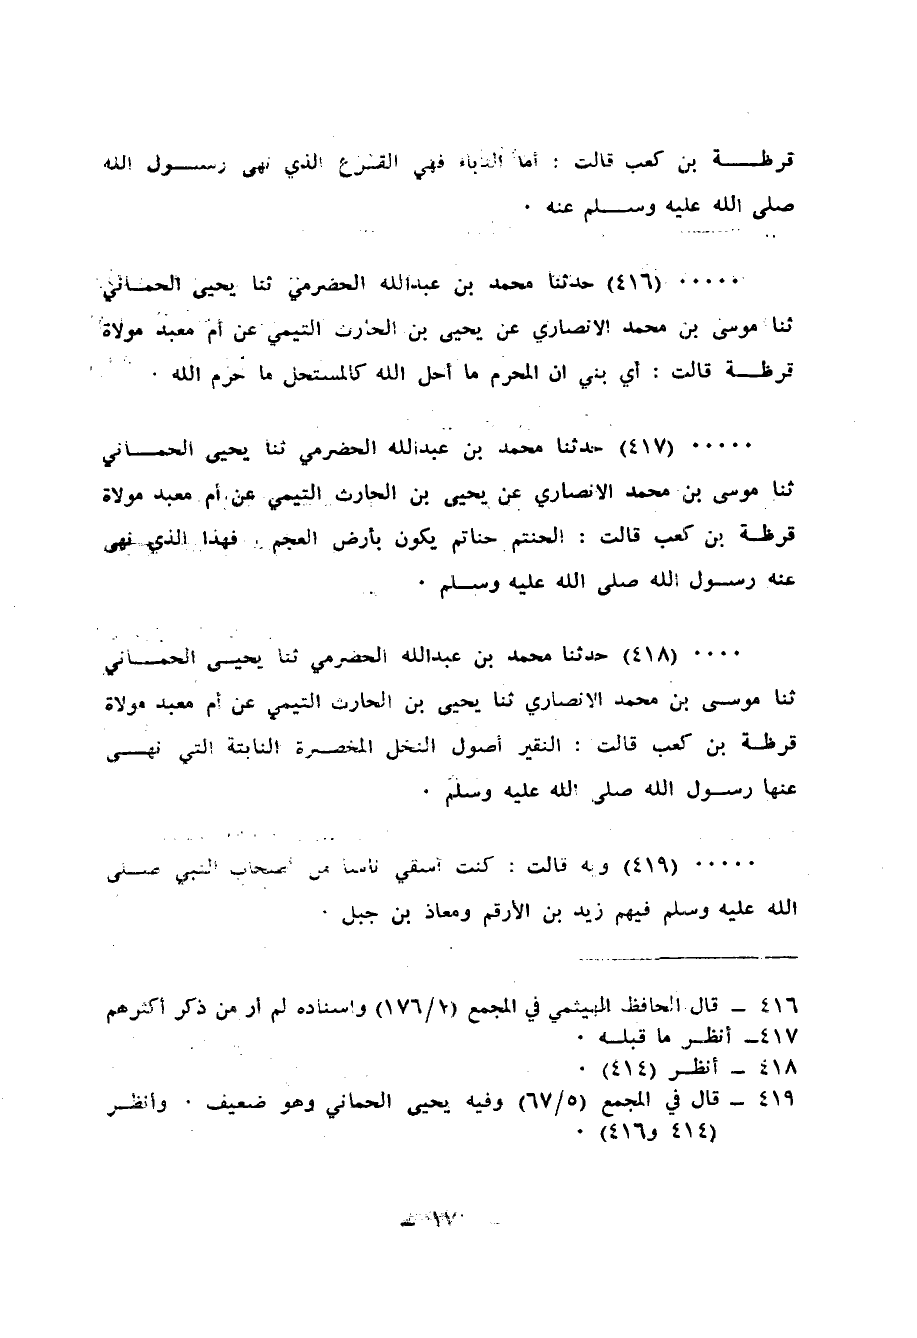 قرظـــة بن كعب قالت : أما الدباء فهي القرع الذي نهى رســـول الله
صلى الله عليه وســـلم عنه ٠
٠٠٠٠٠ (٤١٦) حدثنا محمد بن عبدالله الحضرمي ثنا يحيى الحمـــاني
ثنا موسى بن محمد الانصاري عن يحيى بن الحارث التيمي عن أم معبد مولاة
قرظـــة قالت : أي بني ان المحرم ما أحل الله كالمستحل ما حرم الله ٠
٠٠٠٠٠ (٤١٧) حدثنا محمد بن عبدالله الحضرمي ثنا يحيى الحمـــاني
ثنا موسى بن محمد الانصاري عن يحيى بن الحارث التيمي عن أم معبد مولاة
قرظـة بن كعب قالت : الحنتم حناتم يكون بأرض العجم ، فهذا الذي نهى
عنه رسـول الله صلى الله عليه وسـلم ٠
٠٠٠٠ (٤١٨) حدثنا محمد بن عبدالله الحضرمي ثنا يحيـى الحمـــاني
ثنا موسـى بن محمد الانصاري ثنا يحيى بن الحارث التيمي عن أم معبد مولاة
قرظـة بن كعب قالت : النقير أصول النخل المخصرة النابتة التي نهـى
عنها رسـول الله صلى الله عليه وسلم ٠
٠٠٠٠٠ (٤١٩) وبه قالت : كنت أسقي ناسا من أصحاب النبي صـلى
الله عليه وسلم فيهم زيد بن الأرقم ومعاذ بن جبل ٠
٤١٦ ـ قال الحافظ الهيثمي في المجمع (١٧٦/١) واسناده لم أر من ذكر أكثرهم
٤١٧ـ أنظـر ما قبلـه ٠
٤١٨ ـ أنظـر (٤١٤) ٠
٤١٩ ـ قال في المجمع (٦٧/٥) وفيه يحيى الحماني وهو ضعيف ٠ وأنظـر
(٤١٤ و٤١٦) ٠